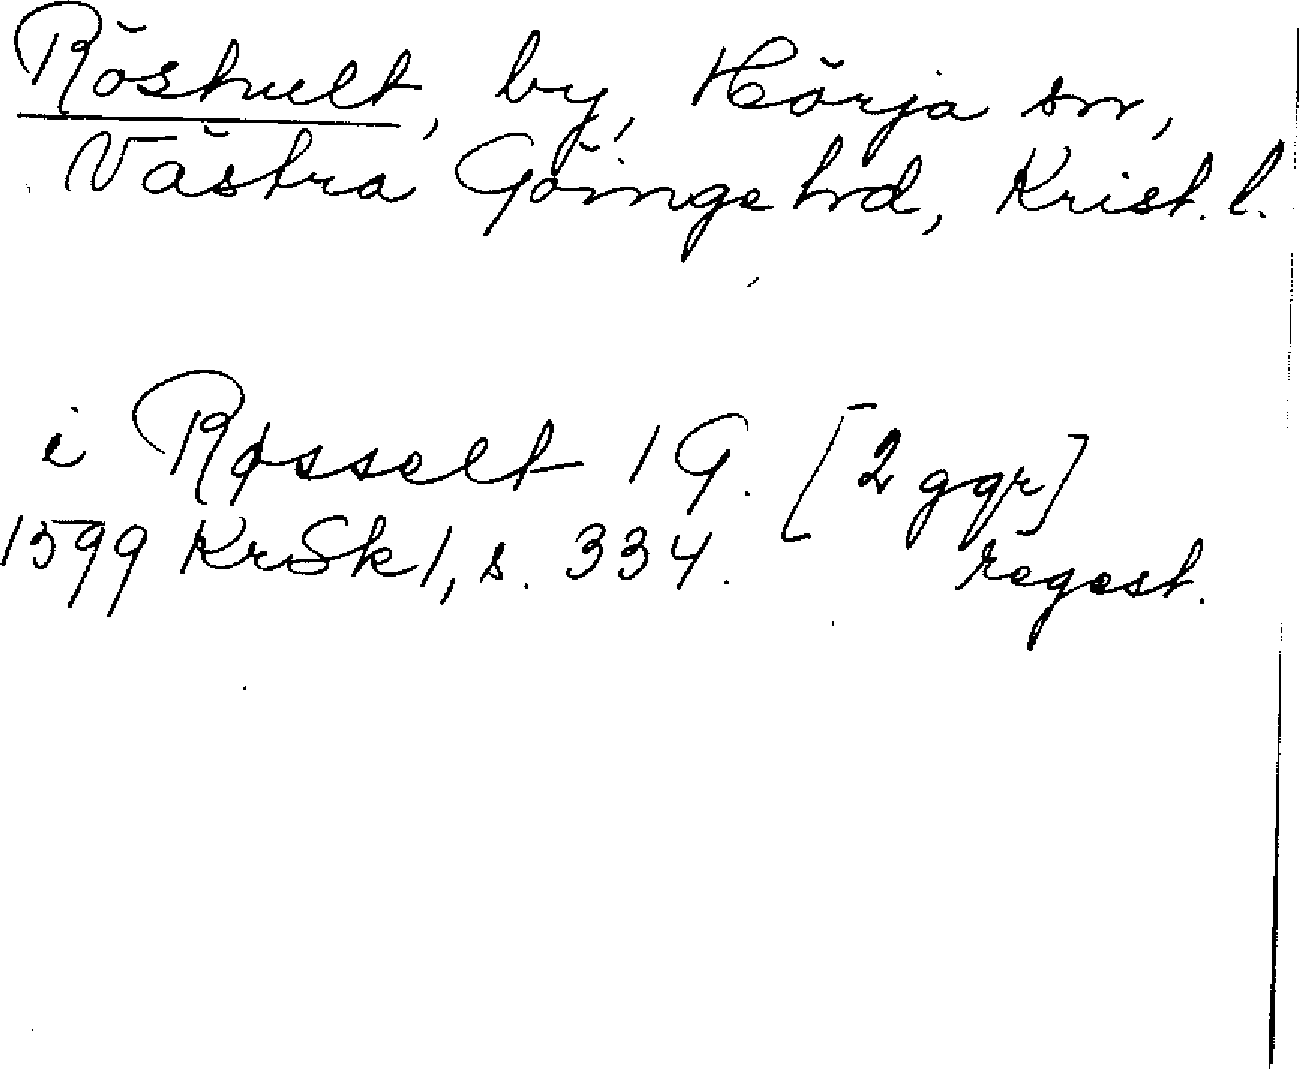 Röshult, by, Hörja sn,
Västra Göinge hd, Krist. l.
i Røsselt 1 G. [2 ggr]
1599 KrSk 1, s. 334. regest.